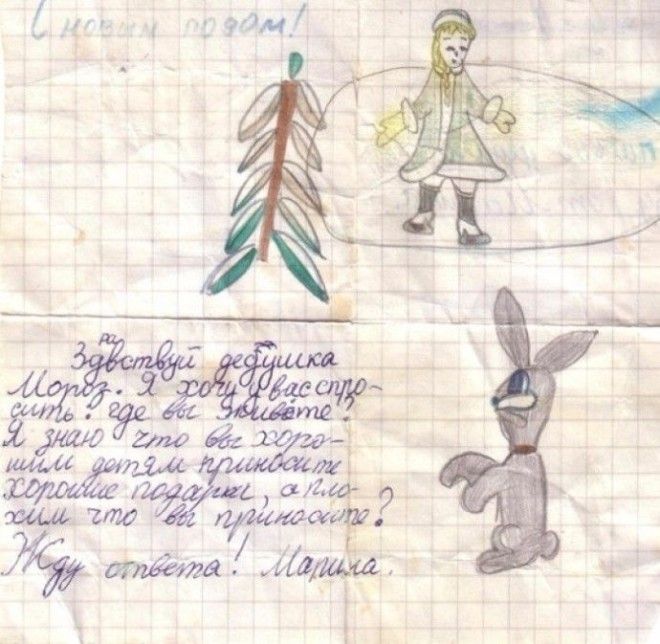 С новым годом!
Здравствуй дедушка
Мороз. Я хочу у вас спро-
сить: где вы живёте?
Я знаю что вы хоро-
шим детям приносите
хорошие подарки, а пло-
хим что вы приносите?
Жду ответа! Марина.